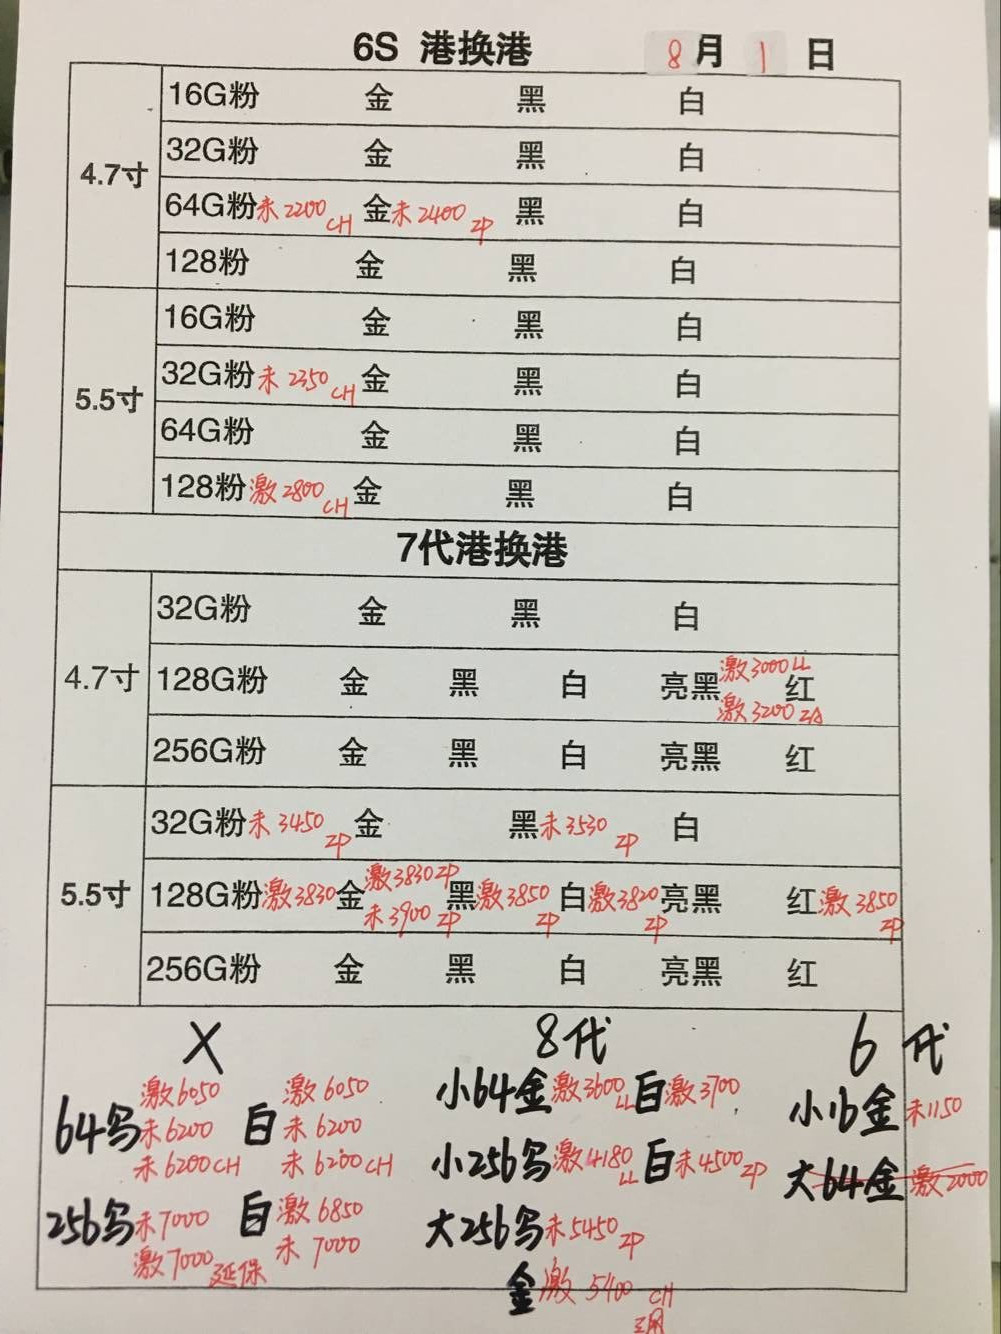 6S 港换港 8月1日
4.7寸
16G粉 金 黑 白
32G粉 金 黑 白
64G粉未2200CH 金未2400ZP 黑 白
128粉 金 黑 白
5.5寸
16G粉 金 黑 白
32G粉未2350CH 金 黑 白
64G粉 金 黑 白
128粉激2800CH 金 黑 白
7代港换港
4.7寸
32G粉 金 黑 白
128G粉 金 黑 白 亮黑 红 激3000LL 激3200ZA
256G粉 金 黑 白 亮黑 红
5.5寸
32G粉未3450ZP 金 黑未3530ZP 白
128G粉激3830 金激3830ZP 未3900ZP 黑激3850ZP 白激3820ZP 亮黑 红激3850ZP
256G粉 金 黑 白 亮黑 红
X
64乌 激6050 白 激6050
未6200 未6200
未6200CH 未6200CH
256乌 未7000 白 激6850
激7000延保 未7000
8代
小64金激3600LL 白激3700
小256乌激4180LL 白未4500ZP
大256乌未5450ZP
金激5400CH
6代
小16金未1150
大64金激2000